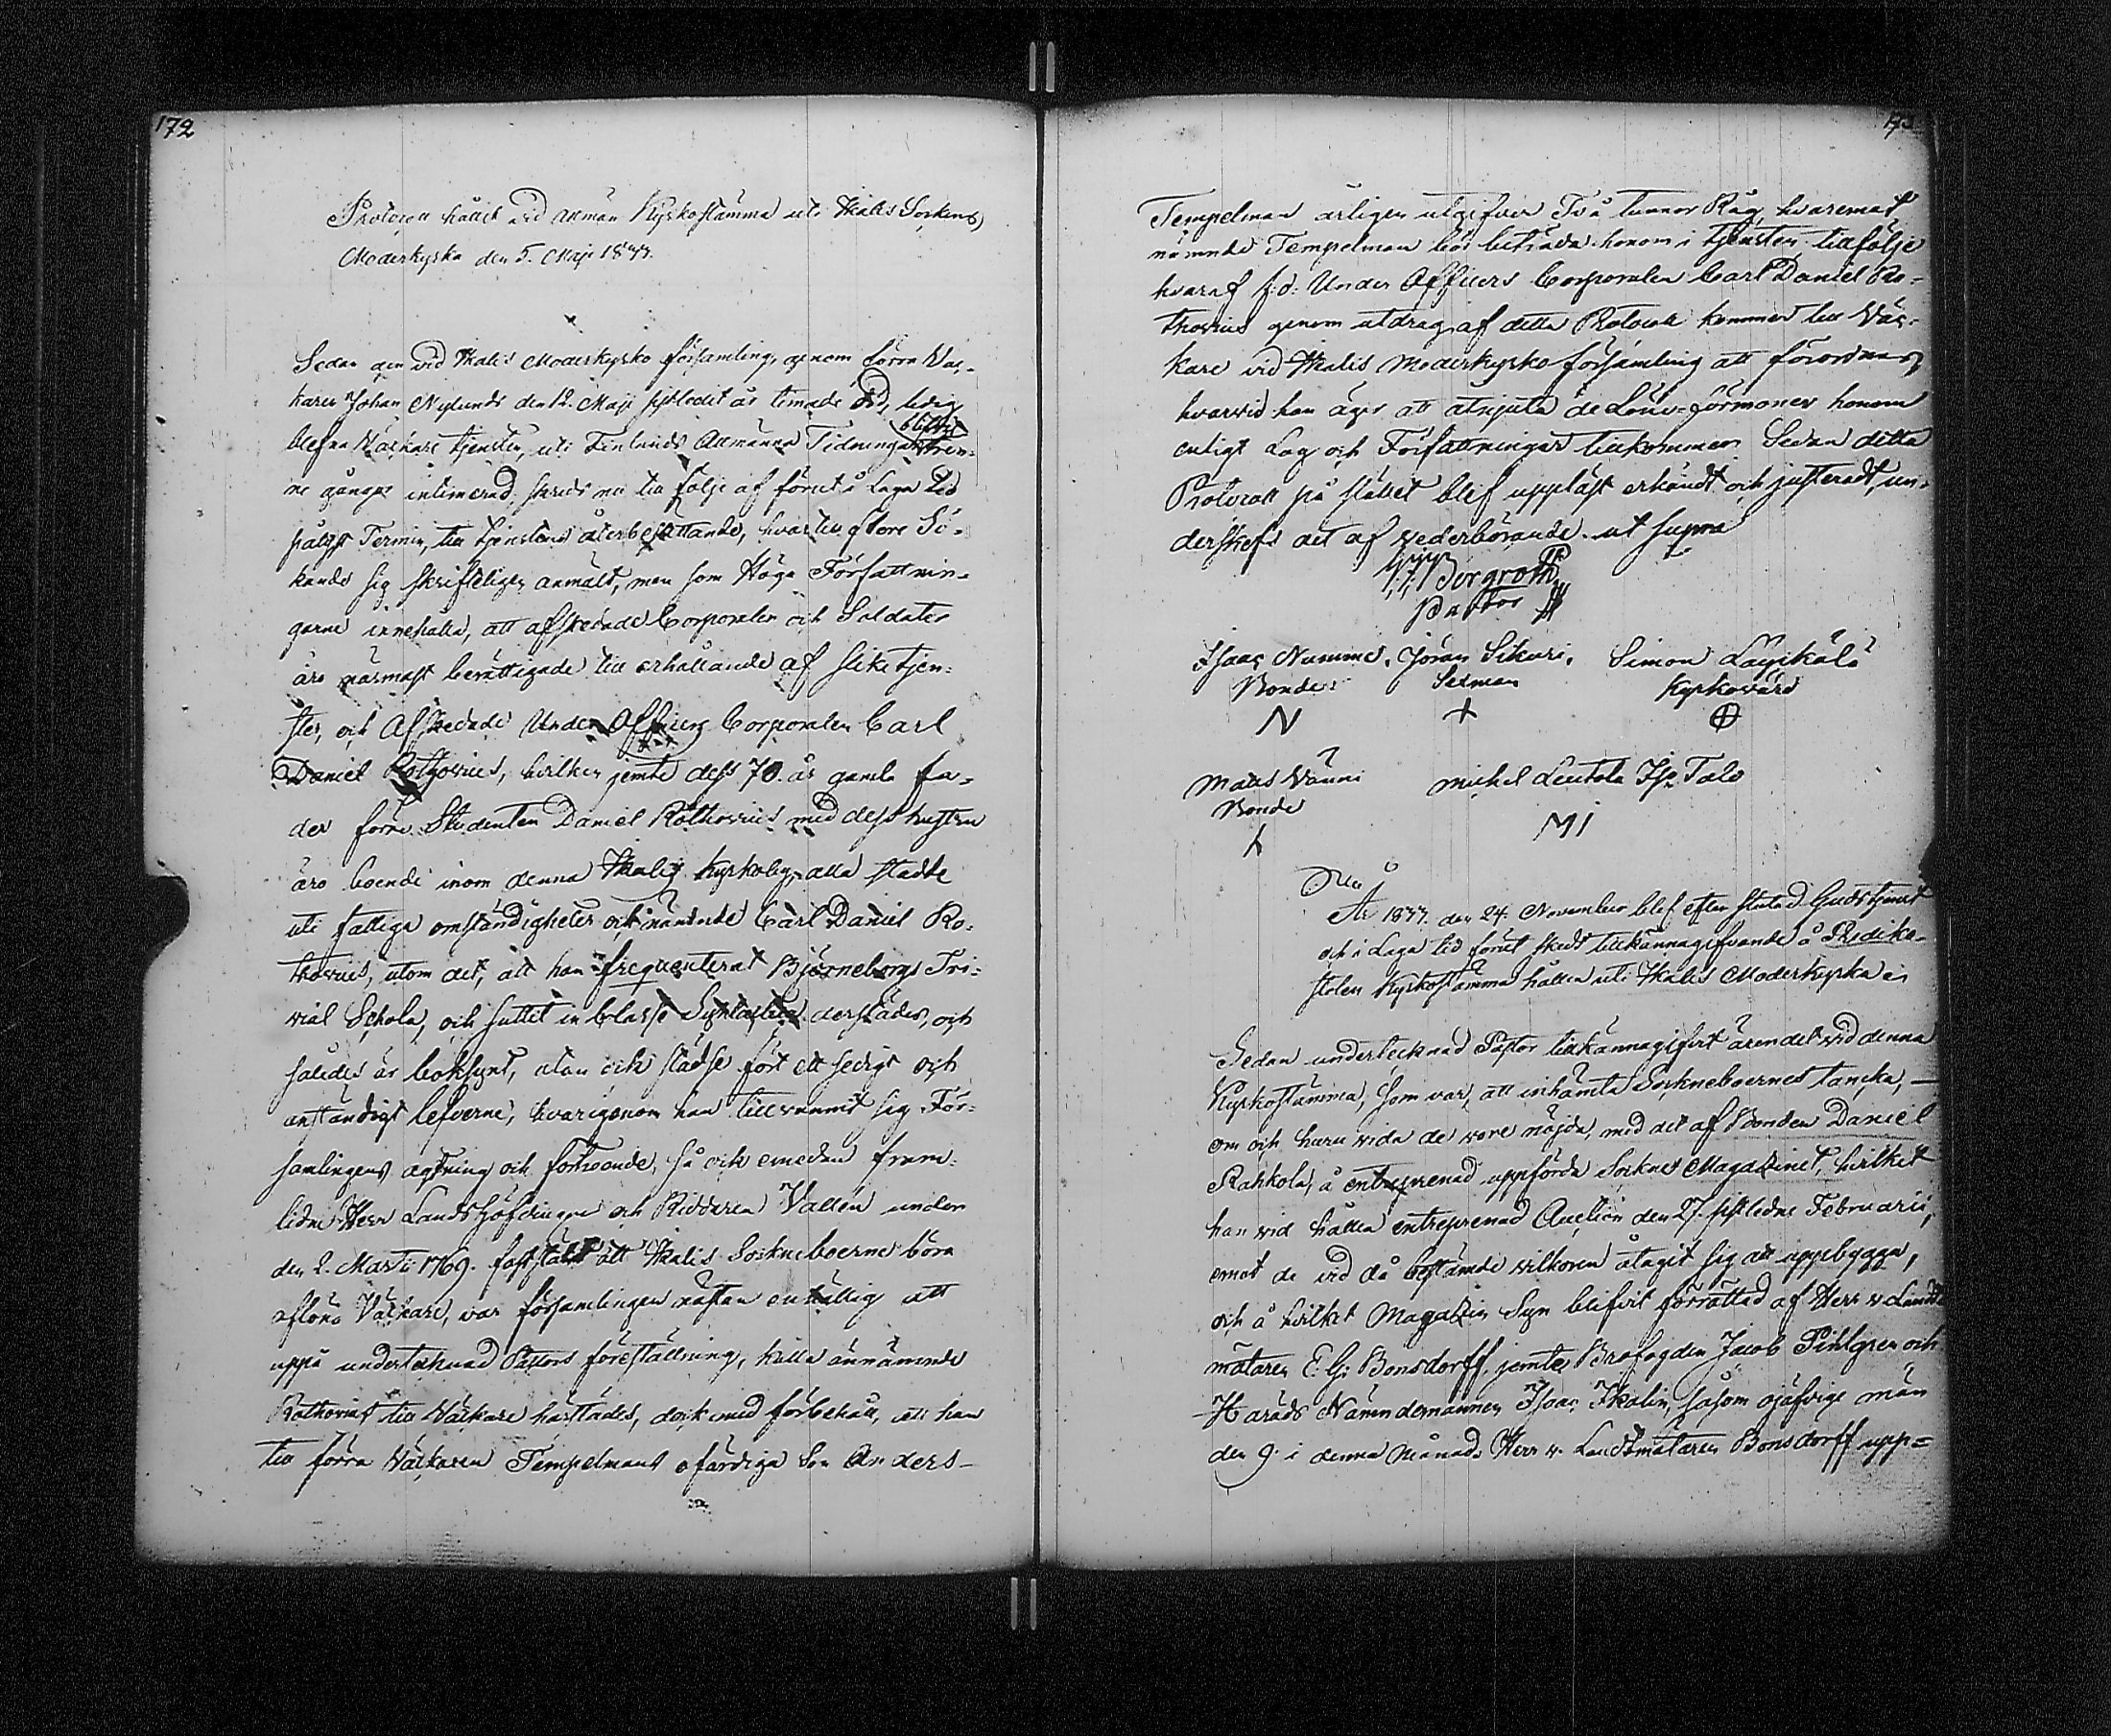 172
Protocoll hållit vid allmän Kyrkostämma uti Ikalis Sockens
Moderkyrka den 5. Maji 1833.
Sedan gen vid Ikalis Moderkyrko församling, genom förra Väc-
karen Johan Nylunds den 12. Maji sistledit år timade död, ledig
blifvit
blefne Väckare tjensten, uti Finlands Allmänna Tidningar tren-
ne gånger intimerad, skreds nu till följe af förut å Laga tid
pålyst Termin, till tjenstens återbesättande, hvartill flere Sö-
kande sig skrifteligen anmält, men som Höga Författnin-
garne innehålla, att afskedade Corporaler och Soldater
äro närmast berättigade till erhållande af slike tjen-
ster, och Afskedade Under Officers Corporalen Carl
Daniel Rothovius, hvilken jemte dess 70. år gamla fa-
der förre Studenten Daniel Rothovius med dess hustru
äro boende inom denna Ikalis Kyrkoby, alla stadde
uti fattiga omständigheter och nämnde Carl Daniel Ro-
thovius, utom det, att han frequenterat Björneborgs Tri-
vial Schola, och suttit in Classe Syntactica derstädes, och
således är boksynt, utan ock städse fört ett sedigt och
anständigt lefverne, hvarigenom han tillvunnit sig För-
samlingens agtning och förtroende, så ock emedan fram-
lidne Herr Landshöfdingen och Riddaren Vallén under
den 2. Martii 1769. fastställt att Ikalis Sockneboerne böra
aflöna Väckare, var församlingen nästan enhällig att
uppå undertecknad Pastors föreställning, kalla ännämnde
Rothovius till Väckare härstädes, dock med förbehåll, att han
till förra Väckaren Tempelmans ofärdiga Son Anders
173
Tempelman årligen utgifver Två tunnor Råg, hvaremot
nämnde Tempelman bör biträda honom i tjensten, till följe
hvaraf f:d: Under Officers Corporalen Carl Daniel Ro-
thovius genom utdrag af detta Protocoll kommer till Väc-
kare vid Ikalis Moderkyrko församling att förordnas,
hvarvid han äger att åtnjuta de Löne-förmoner honom
enligt Lag och Författningar tillkommer. Sedan detta
Protocoll på stället blef uppläst erkändt och justeradt, un-
derskrefs det af vederbörande. ut supra
Bergroth
Pastor
Isaac Numme. Jöran Sikuri. Simon Läyikälä
Bonde Sexman Kyrkovärd
N + ⊕
Matts Vänni michel Leutola Is. Talo
Bonde
X MI
År 1833. den 24. November blef efter slutad Gudstjenst
och i Laga tid förut skedt tillkännagifvande å Prediko-
stolen Kyrkostämma hållen uti Ikalis Moderkyrka
Sedan undertecknad Pastor tillkännagifvit ärendet vid denna
Kyrkostämma, som var, att inhämta Sockneboernes tancka,
om och huru vida de vore nöjda, med det af Bonden Daniel
Rahkola, å entreprenad uppförda Sockne Magazinet, hvilket
han vid hållen entreprenad Auction den 27. sistledne Februarii,
emot de vid då bestämde vilkoren åtagit sig att uppbygga,
och å hvilket Magazin Syn blifvit förrättad af Herr v. Landt
mätaren E. G: Bonsdorff, jemte Brofogden Jacob Pihlgren och
Härads Nämndemannen Isaac Ikalin, såsom ojäfvige män
den 9. i denna Månad. Herr v. Landtmätaren Bonsdorff upp=